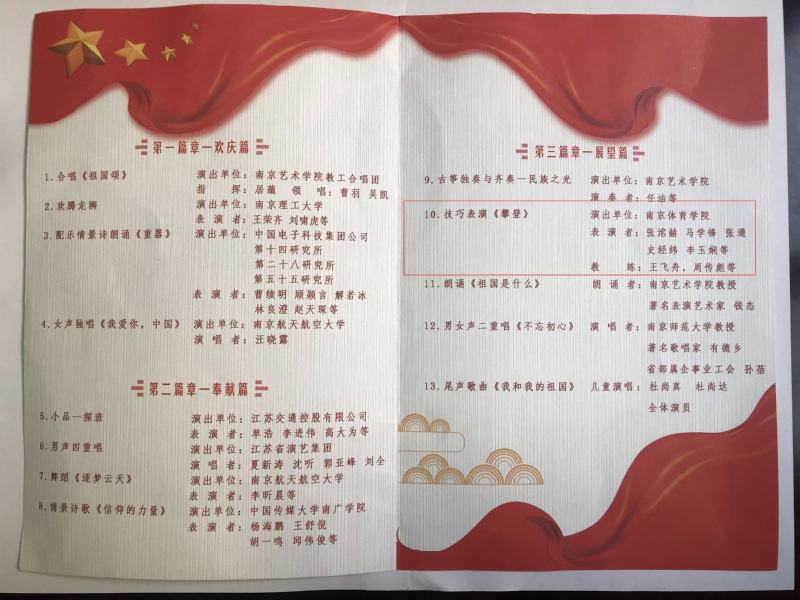 第一篇章—欢庆篇
1.合唱《祖国颂》 演出单位：南京艺术学院教工合唱团
指 挥：居蕴 领 唱：曹羽 吴凯
2.欢腾龙狮 演出单位：南京理工大学
表 演 者：王荣齐 刘啸虎等
3.配乐情景诗朗诵《重器》 演出单位：中国电子科技集团公司
第十四研究所
第二十八研究所
第五十五研究所
表 演 者：曹续明 顾颖言 解若冰
林良澄 赵天琛等
4.女声独唱《我爱你，中国》 演出单位：南京航天航空大学
演 唱 者：汪晓露
第二篇章—奉献篇
5.小品—探班 演出单位：江苏交通控股有限公司
表 演 者：单浩 李进伟 高大为等
6.男声四重唱 演出单位：江苏省演艺集团
演 唱 者：夏新涛 沈听 郭亚峰 刘全
7.舞蹈《逐梦云天》 演出单位：南京航天航空大学
表 演 者：李昕晨等
8.情景诗歌《信仰的力量》 演出单位：中国传媒大学南广学院
表 演 者：杨海鹏 王舒倪
胡一鸣 邱伟俊等
第三篇章—展望篇
9.古筝独奏与齐奏—民族之光 演出单位：南京艺术学院
演 奏 者：任洁等
10.技巧表演《攀登》 演出单位：南京体育学院
表 演 者：张洺赫 马学锋 张通
史经纬 李玉娴等
教 练：王飞舟，周传彪等
11.朗诵《祖国是什么》 朗 诵 者：南京艺术学院教授
著名表演艺术家 钱态
12.男女声二重唱《不忘初心》 演 唱 者：南京师范大学教授
著名歌唱家 有德乡
省部属企事业工会 孙蓓
13.尾声歌曲《我和我的祖国》 儿童演唱：杜尚真 杜尚达
全体演员